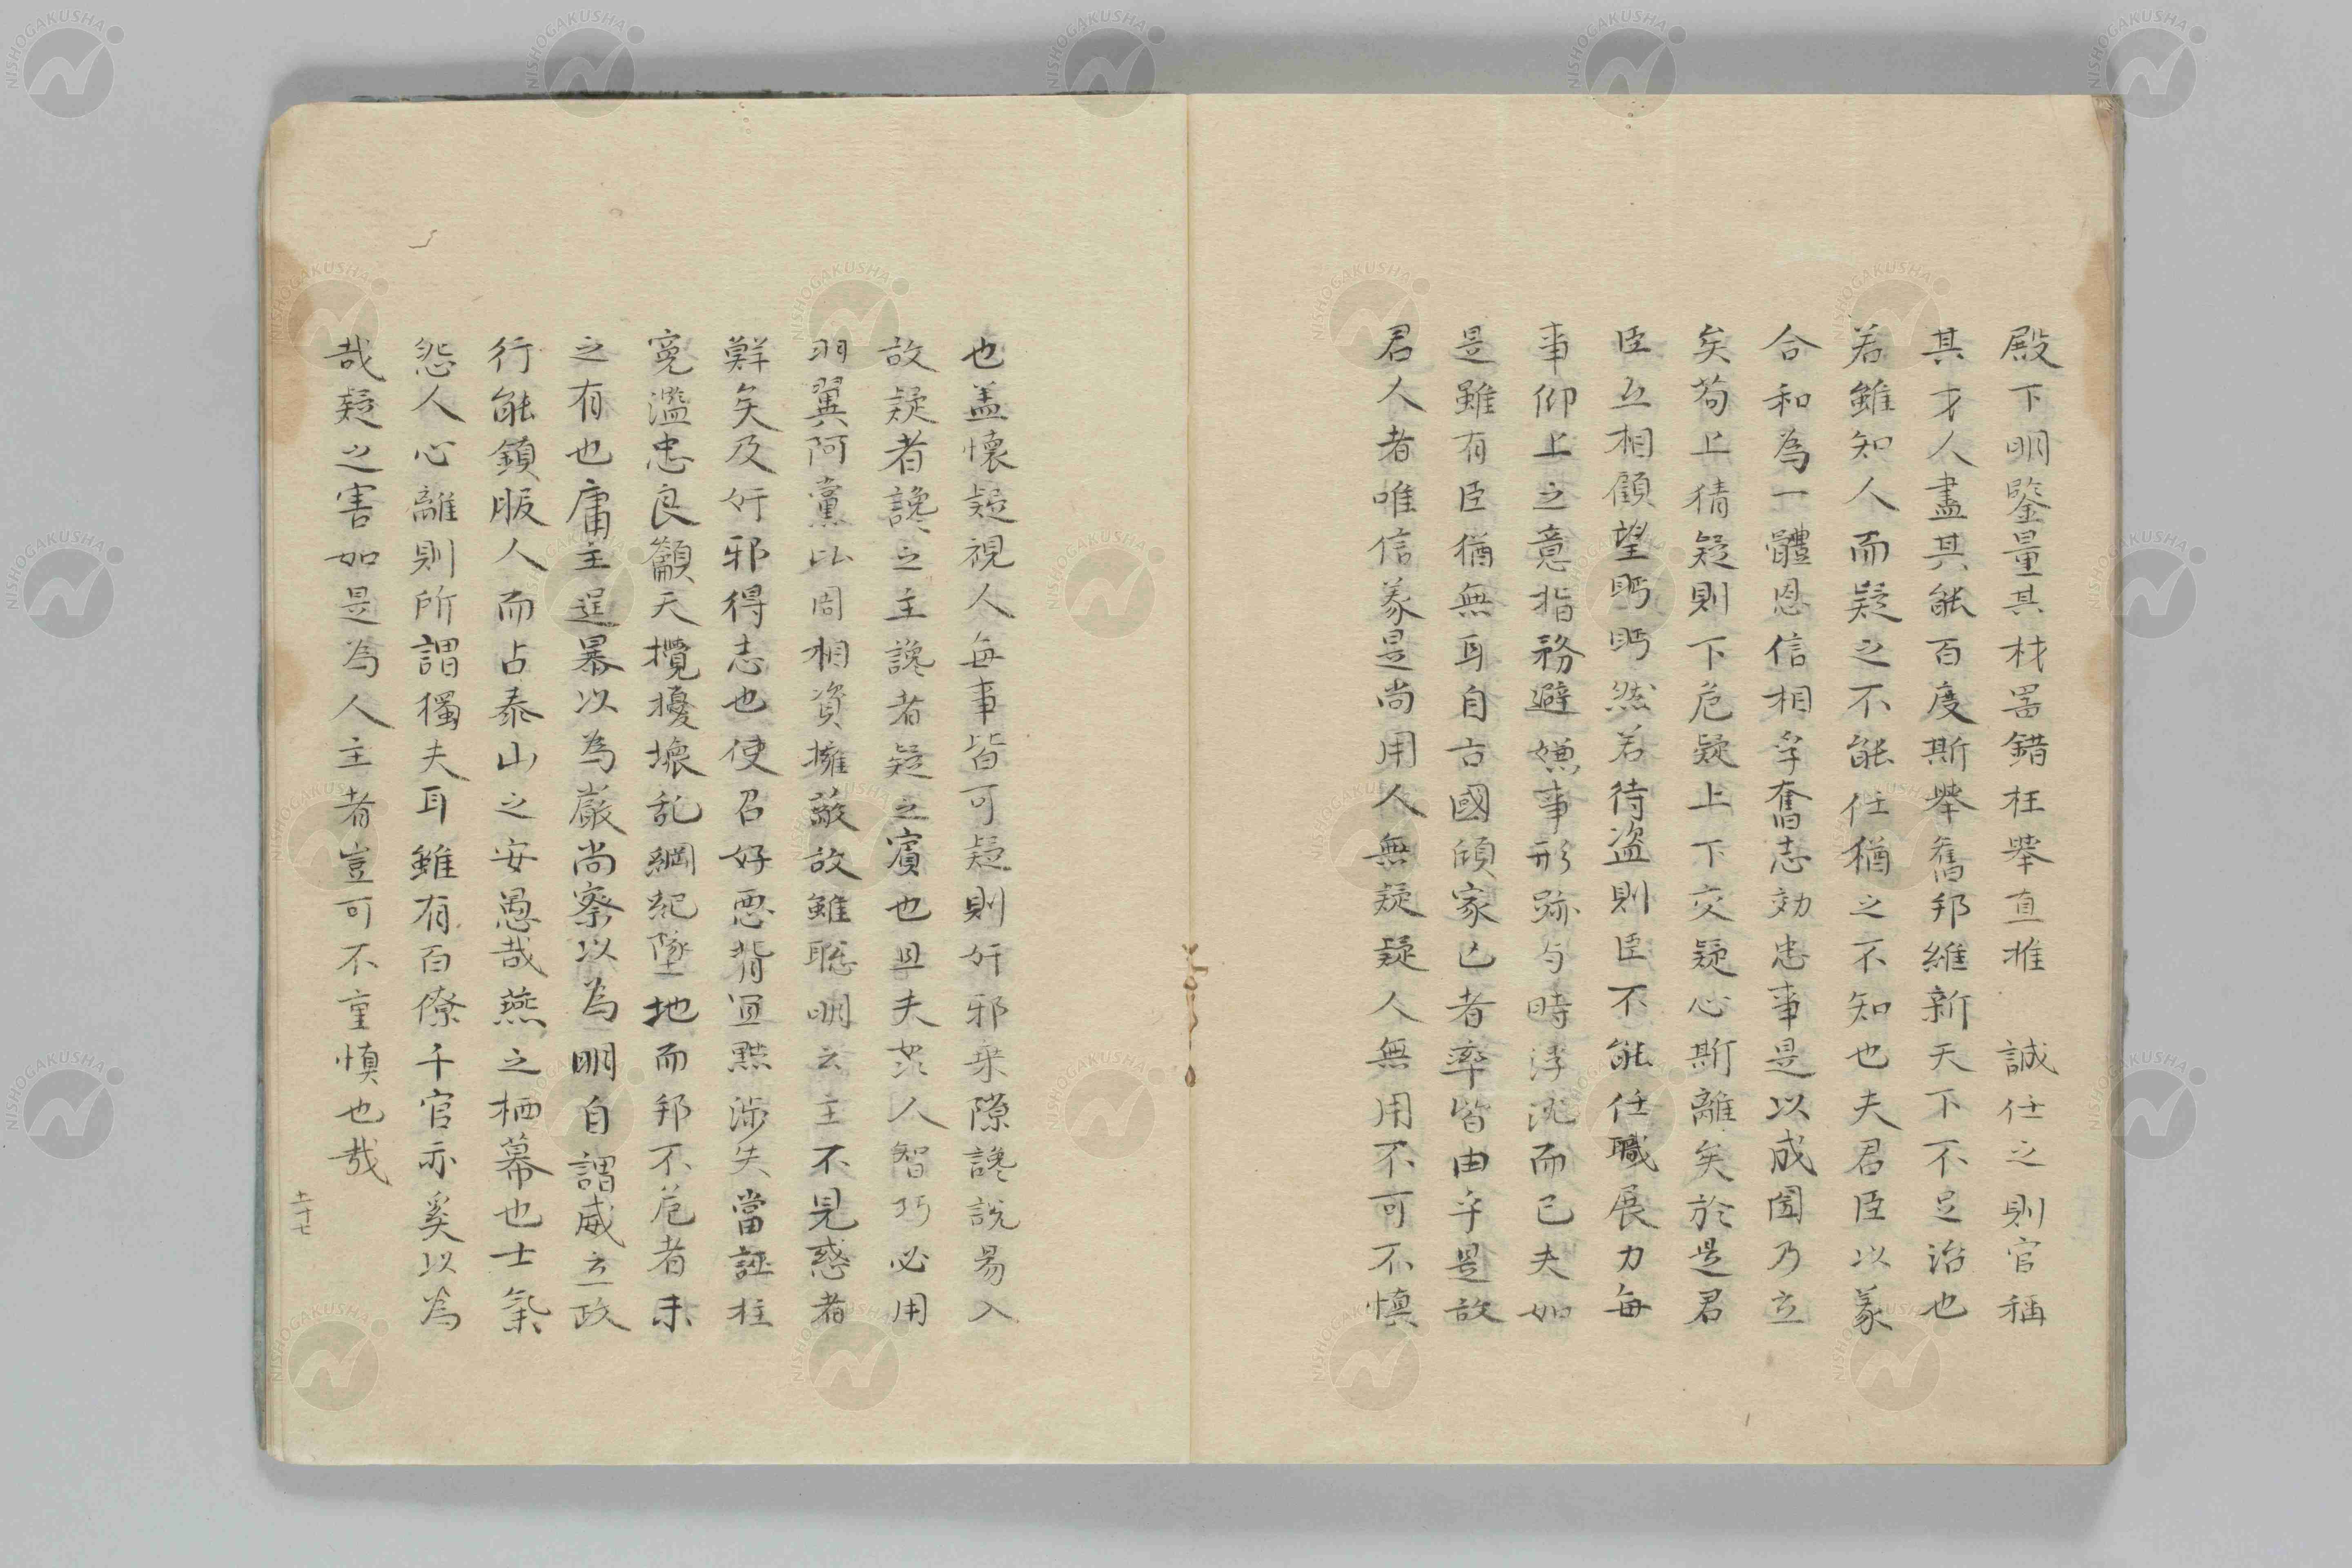 殿下明鑒量其材噐錯枉擧直推　誠任之則官稱
其才人盡其能百度斯擧舊邦維新天下不足治也
若雖知人而疑之不能任猶之不知也夫君臣以義
合和為一體恩信相孚奮志効忠事是以成國乃立
矣苟上猜疑則下危疑上下交疑心斯離矣於是君
臣互相顧望眄眄然若待盗則臣不能任職展力每
事仰上之意指務避嫌事形弥与時浮沈而已夫如
是雖有臣猶無耳自古國傾家亡者率皆由乎是故
君人者唯信義是尚用人無疑疑人無用不可不慎
也盖懐疑視人每事皆可疑則奸邪乗隙讒説易入
故疑者讒之主讒者疑之賓也且夫衆人智巧必用
羽翼阿黨比周相資擁蔽故雖聡明之主不見惑者
鮮矣及奸邪得志也使召好悪背宜黜渉失當誣枉
寃濫忠良籲天攪擾壊乱綱紀墜地而邦不危者未
之有也庸主逞暴以為厳尚察以為明自謂威立政
行能鎮服人而占泰山之安愚哉燕之栖幕也士氣
怨人心離則所謂獨夫耳雖有百僚千官亦奚以為
哉疑之害如是為人主者豈可不重慎也哉
二十七
NISHOGAKUSHA